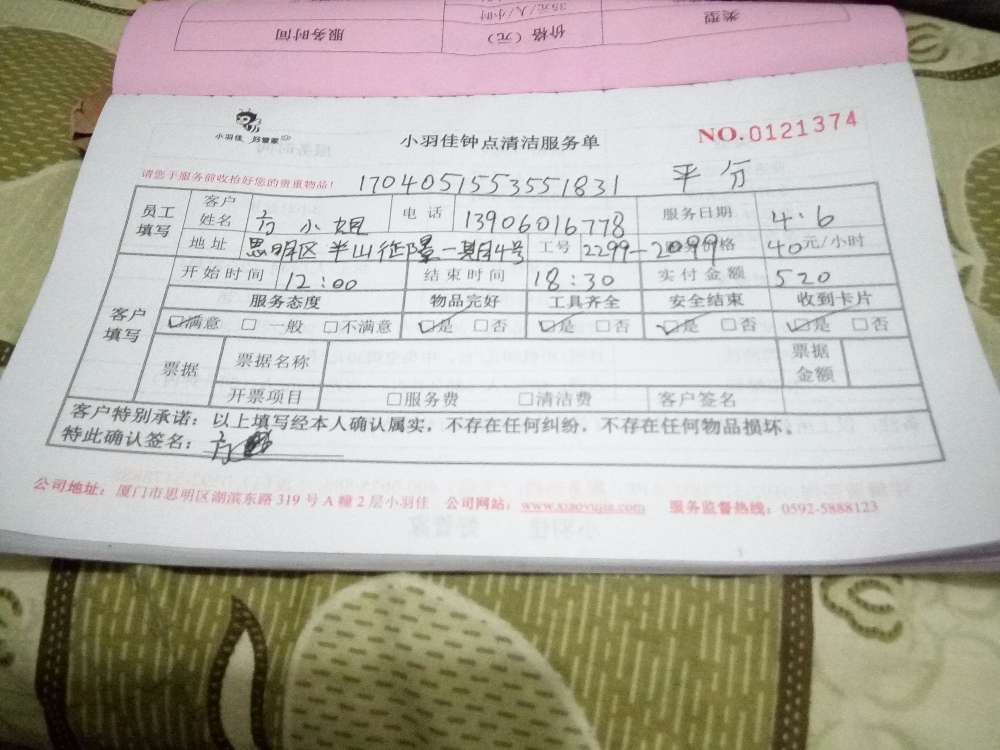 35元/人/小时
类型 价格(元) 服务时间
小羽佳 好管家
小羽佳钟点清洁服务单 NO.0121374
请您于服务前收拾好您的贵重物品! 1704051553551831 平分
员工填写 客户姓名 方小姐 电话 13906016778 服务日期 4:6
地址 思明区半山 一期4号 工号 2299-2099 价格 40元/小时
客户填写 开始时间 12:00 结束时间 18:30 实付金额 520
服务态度 物品完好 工具齐全 安全结束 收到卡片
☑满意 □一般 □不满意 ☑是 □否 ☑是 □否 ☑是 □否 ☑是 □否
票据 票据名称 票据金额
开票项目 □服务费 □清洁费 客户签名
客户特别承诺:以上填写经本人确认属实,不存在任何纠纷,不存在任何物品损坏。
特此确认签名:方
公司地址:厦门市思明区湖滨东路319号A幢2层小羽佳 公司网站:www.xiaoyujia.com 服务监督热线:0592-5888123